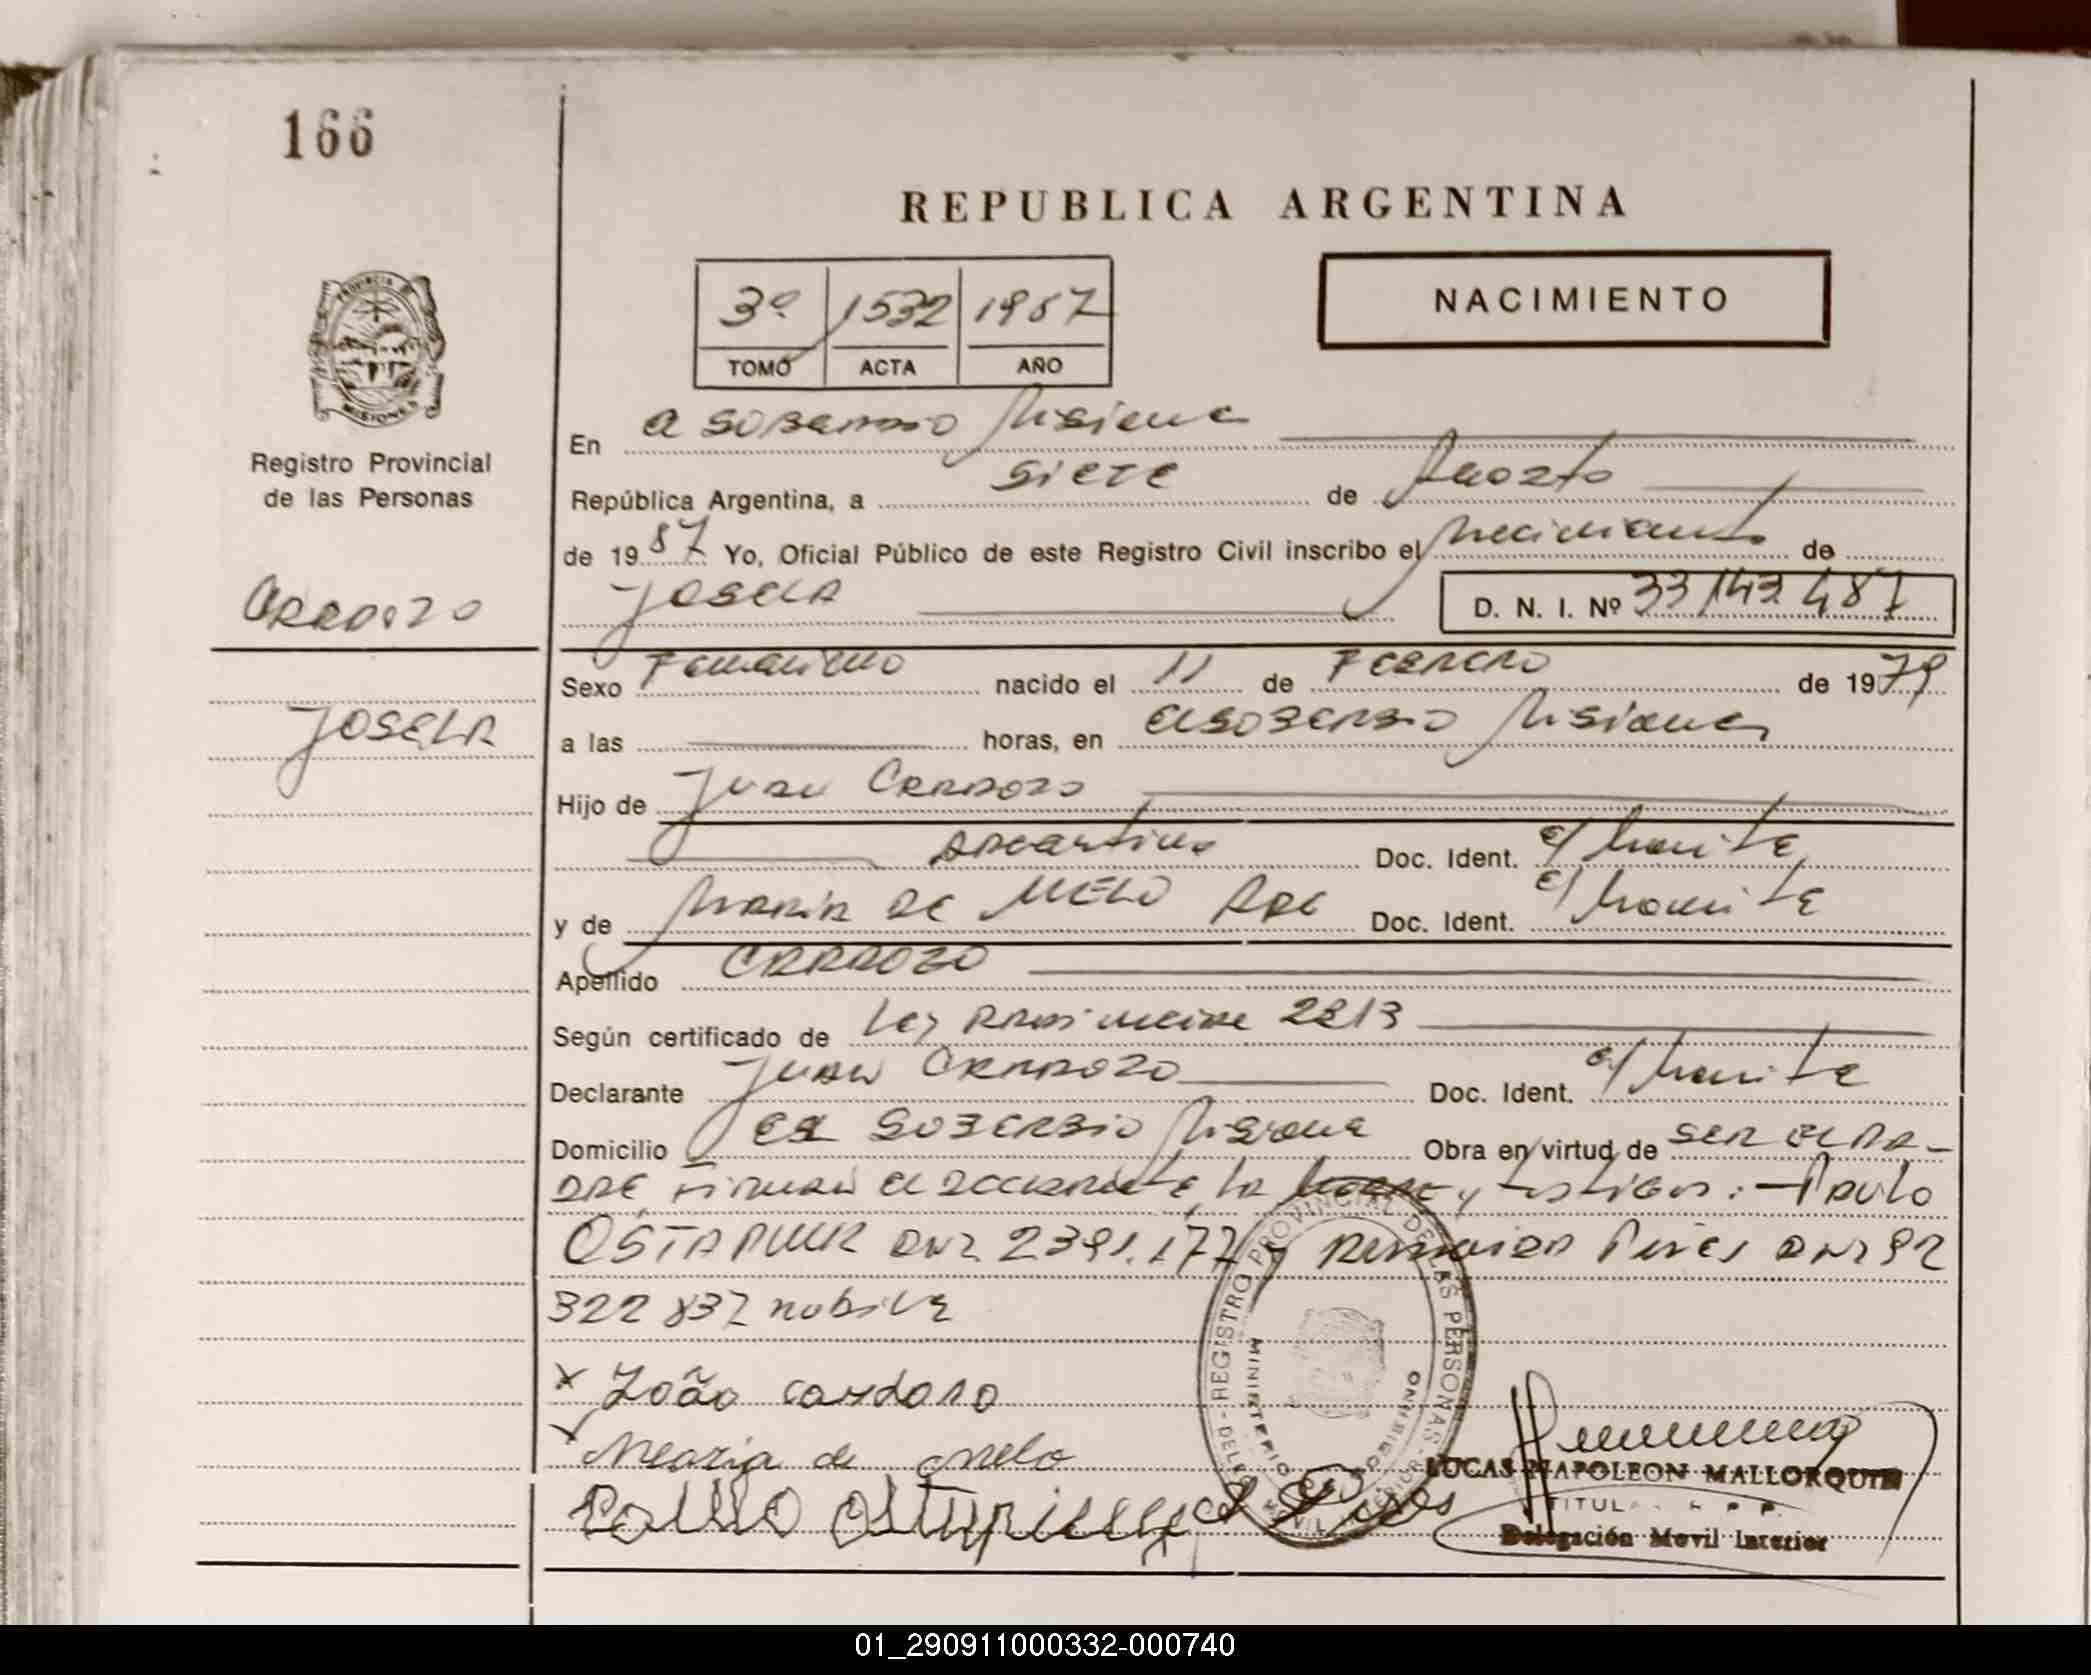 166
REPUBLICA ARGENTINA
3º 1532 1987
TOMO ACTA AÑO
NACIMIENTO
PROVINCIA DE MISIONES
Registro Provincial
de las Personas
En Misiones
República Argentina, a Siete de Agosto
de 1987 Yo, Oficial Público de este Registro Civil inscribo el Nacimiento de
Cardozo
JOSELA
D. N. I. Nº 33 143 487
Sexo Femenino nacido el 11 de Febrero de 1979
JOSELA
a las horas, en Misiones
Hijo de Juan Cardozo
Argentino Doc. Ident. c/ tramite
y de María de MELO Doc. Ident. c/ tramite
Apellido CARDOZO
Según certificado de Ley 2213
Declarante Juan CARDOZO Doc. Ident. c/ tramite
Domicilio Misiones Obra en virtud de ser el pa-
dre Firman el declarante, la madre y testigos: Paulo
OSTAPIUK DNI 2391.177 y Pires DNI 92
322 837
x João cardoso
x Maria de Melo
REGISTRO PROVINCIAL DE LAS PERSONAS
MINISTERIO
LUCAS NAPOLEON MALLORQUIN
TITULAR R. P. P.
Delegación Movil Interior
01_290911000332-000740